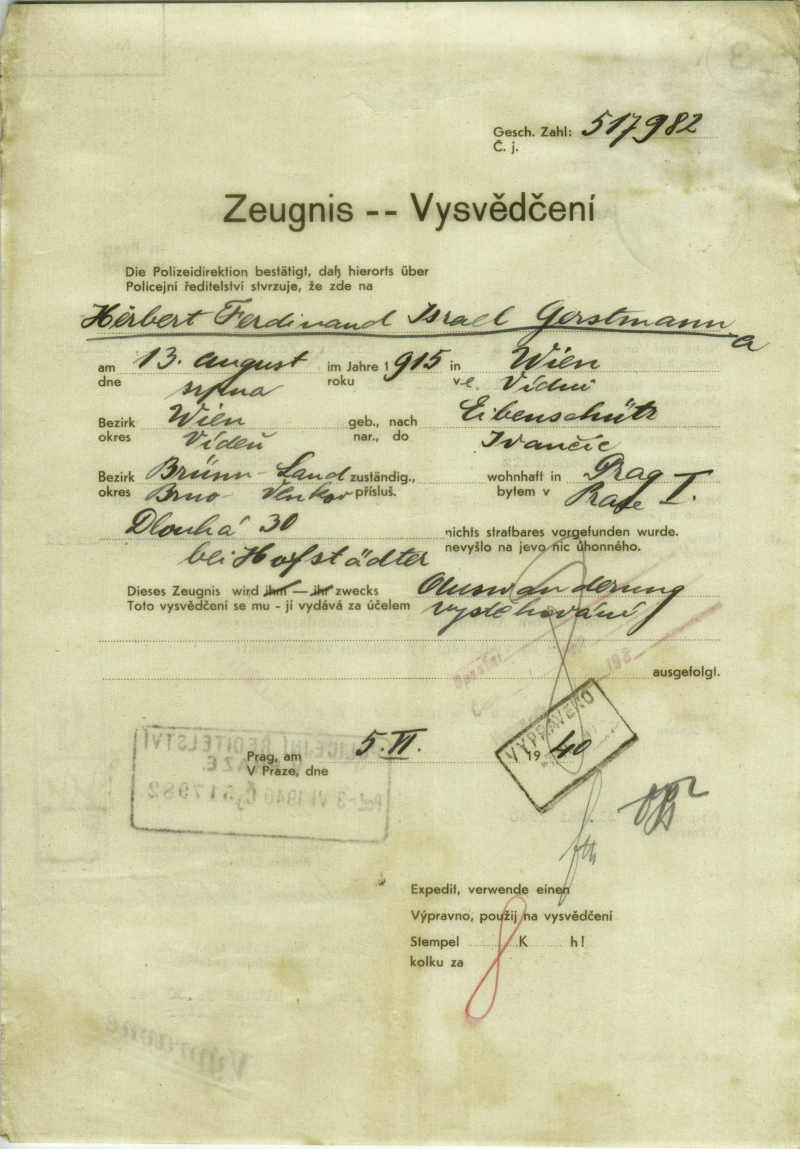 Gesch. Zahl: 517982
Č. j.
Zeugnis -- Vysvědčení
Die Polizeidirektion bestätigt, daß hierorts über
Policejní ředitelství stvrzuje, že zde na
Herbert Ferdinand Israel Gerstmann-a
am 13. august im Jahre 1915 in Wien
dne srpna roku ve Vídni
Bezirk Wien geb., nach Eibenschütz
okres Vídeň nar., do Ivančic
Bezirk Brünn-Land zuständig., wohnhaft in Prag
okres Brno-Venkov přísluš. bytem v Praze I.
Dlouhá 30 nichts strafbares vorgefunden wurde.
bei Hofstädter nevyšlo na jevo nic úhonného.
Dieses Zeugnis wird ihm — ihr zwecks Auswanderung
Toto vysvědčení se mu - jí vydává za účelem vystěhování
ausgefolgt.
VYPRAVENO
POLICEJNÍ ŘEDITELSTVÍ
Prag, am 5. VI. 1940
V Praze, dne
3 VI 1940 Č. 517982
Expedit, verwende einen
Výpravno, použij na vysvědčení
Stempel K h!
kolku za 8
Výpravna